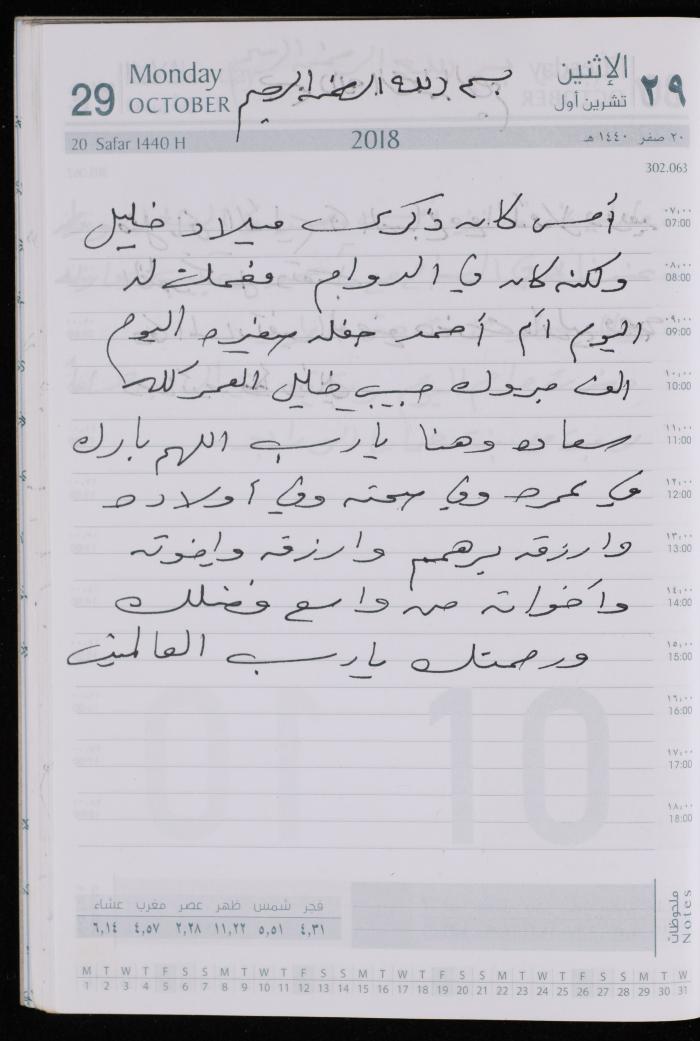 29 Monday OCTOBER
بسم الله الرحمن الرحيم
الإثنين ٢٩ تشرين أول
20 Safar 1440 H 2018 ٢٠ صفر ١٤٤٠ هـ
302.063
أمس كان ذكرى ميلاد خليل
ولكنه كان في الدوام فعملت له
اليوم أم أحمد حفله صغيره اليوم
الف مبروك حبيبي خليل العمر كله
سعاده وهنا يارب اللهم بارك
في عمره وفي صحته وفي أولاده
وارزقه برهم وارزقه واخوته
وأخواته من واسع فضلك
ورحمتك يارب العالمين
٠٧,٠٠ 07:00
٠٨,٠٠ 08:00
٠٩,٠٠ 09:00
١٠,٠٠ 10:00
١١,٠٠ 11:00
١٢,٠٠ 12:00
١٣,٠٠ 13:00
١٤,٠٠ 14:00
١٥,٠٠ 15:00
١٦,٠٠ 16:00
١٧,٠٠ 17:00
١٨,٠٠ 18:00
10
فجر شمس ظهر عصر مغرب عشاء
٤,٣١ ٥,٥١ ١١,٢٢ ٢,٢٨ ٤,٥٧ ٦,١٤
ملحوظات
Notes
M T W T F S S M T W T F S S M T W T F S S M T W T F S S M T W
1 2 3 4 5 6 7 8 9 10 11 12 13 14 15 16 17 18 19 20 21 22 23 24 25 26 27 28 29 30 31